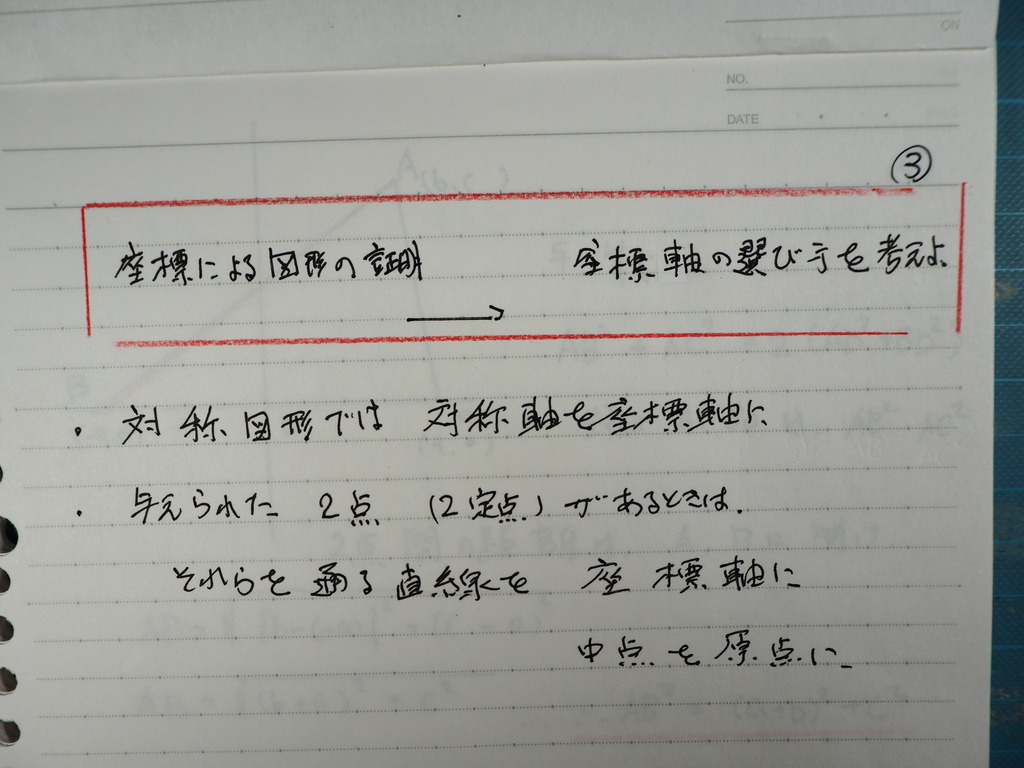 NO.
DATE
③
座標による図形の証明 → 座標軸の選び方を考えよ
・対称図形では 対称軸を座標軸に
・与えられた 2点 (2定点) があるときは.
それらを 通る 直線を 座標軸に
中点を原点に